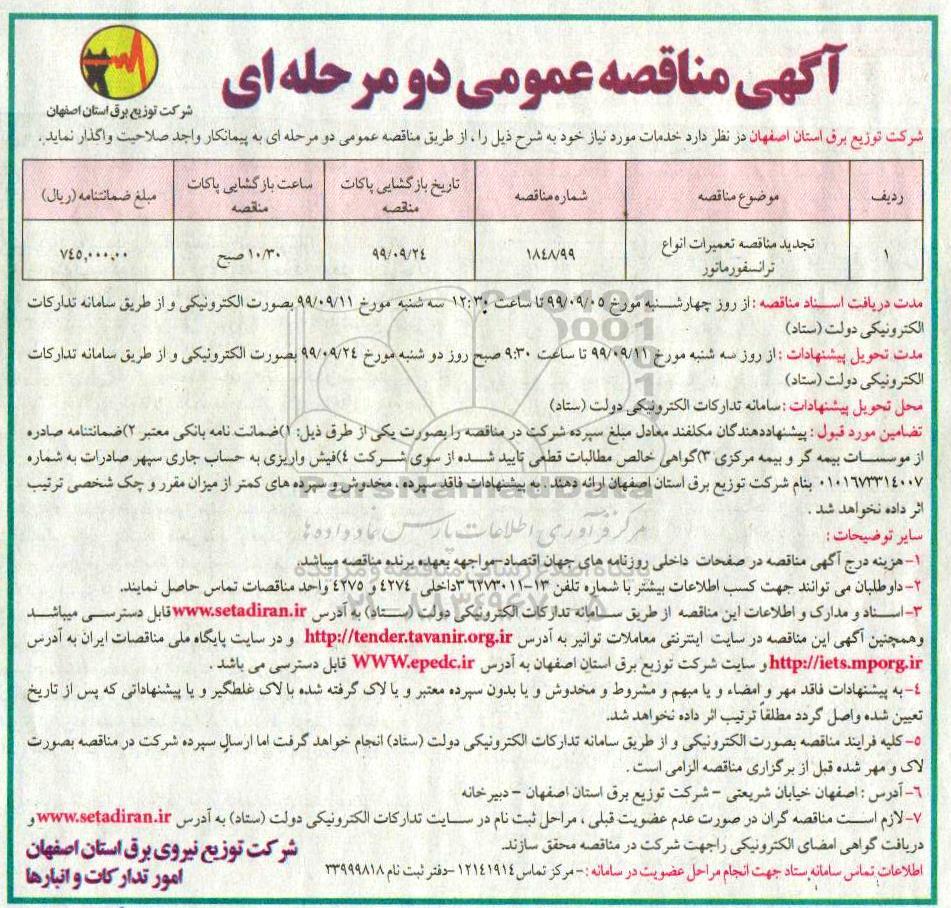 آگهی مناقصه عمومی دو مرحله ای
شرکت توزیع برق استان اصفهان
شرکت توزیع برق استان اصفهان در نظر دارد خدمات مورد نیاز خود به شرح ذیل را ، از طریق مناقصه عمومی دو مرحله ای به پیمانکار واجد صلاحیت واگذار نماید.
ردیف موضوع مناقصه شماره مناقصه تاریخ بازگشایی پاکات مناقصه ساعت بازگشایی پاکات مناقصه مبلغ ضمانتنامه (ریال)
۱ تجدید مناقصه تعمیرات انواع ترانسفورماتور ۱۸۴۸/۹۹ ۹۹/۰۹/۲۴ ۱۰/۳۰ صبح ۷۴۵,۰۰۰,۰۰
مدت دریافت اسناد مناقصه : از روز چهارشنبه مورخ ۹۹/۰۹/۰۵ تا ساعت ۱۲:۳۰ سه شنبه مورخ ۹۹/۰۹/۱۱ بصورت الکترونیکی و از طریق سامانه تدارکات
الکترونیکی دولت (ستاد)
مدت تحویل پیشنهادات : از روز سه شنبه مورخ ۹۹/۰۹/۱۱ تا ساعت ۹:۳۰ صبح روز دو شنبه مورخ ۹۹/۰۹/۲۴ بصورت الکترونیکی و از طریق سامانه تدارکات
الکترونیکی دولت (ستاد)
محل تحویل پیشنهادات : سامانه تدارکات الکترونیکی دولت (ستاد)
تضامین مورد قبول : پیشنهاددهندگان مکلفند معادل مبلغ سپرده شرکت در مناقصه را بصورت یکی از طرق ذیل: ۱)ضمانت نامه بانکی معتبر ۲)ضمانتنامه صادره
از موسسات بیمه گر و بیمه مرکزی ۳)گواهی خالص مطالبات قطعی تایید شده از سوی شرکت ۴)فیش واریزی به حساب جاری سپهر صادرات به شماره
۰۱۰۱۶۷۳۳۱۴۰۰۷ بنام شرکت توزیع برق استان اصفهان ارائه دهند . به پیشنهادات فاقد سپرده ، مخدوش و سپرده های کمتر از میزان مقرر و چک شخصی ترتیب
اثر داده نخواهد شد .
سایر توضیحات :
۱- هزینه درج آگهی مناقصه در صفحات داخلی روزنامه های جهان اقتصاد-مواجهه بعهده برنده مناقصه میباشد.
۲- داوطلبان می توانند جهت کسب اطلاعات بیشتر با شماره تلفن ۱۳-۳۶۲۷۳۰۱۱ داخلی ۴۲۷۴ و ۴۲۷۵ واحد مناقصات تماس حاصل نمایند.
۳- اسناد و مدارک و اطلاعات این مناقصه از طریق سامانه تدارکات الکترونیکی دولت (ستاد) به آدرس www.setadiran.ir قابل دسترسی میباشد
وهمچنین آگهی این مناقصه در سایت اینترنتی معاملات توانیر به آدرس http://tender.tavanir.org.ir و در سایت پایگاه ملی مناقصات ایران به آدرس
http://iets.mporg.ir و سایت شرکت توزیع برق استان اصفهان به آدرس WWW.epedc.ir قابل دسترسی می باشد .
۴- به پیشنهادات فاقد مهر و امضاء و یا مبهم و مشروط و مخدوش و یا بدون سپرده معتبر و یا لاک گرفته شده با لاک غلطگیر و یا پیشنهاداتی که پس از تاریخ
تعیین شده واصل گردد مطلقاً ترتیب اثر داده نخواهد شد.
۵- کلیه فرایند مناقصه بصورت الکترونیکی و از طریق سامانه تدارکات الکترونیکی دولت (ستاد) انجام خواهد گرفت اما ارسال سپرده شرکت در مناقصه بصورت
لاک و مهر شده قبل از برگزاری مناقصه الزامی است .
۶- آدرس : اصفهان خیابان شریعتی - شرکت توزیع برق استان اصفهان - دبیرخانه
۷- لازم است مناقصه گران در صورت عدم عضویت قبلی ، مراحل ثبت نام در سایت تدارکات الکترونیکی دولت (ستاد) به آدرس www.setadiran.ir و
دریافت گواهی امضای الکترونیکی راجهت شرکت در مناقصه محقق سازند.
اطلاعات تماس سامانه ستاد جهت انجام مراحل عضویت در سامانه : - مرکز تماس ۱۲۱۴۱۹۱۴ -دفتر ثبت نام ۲۳۹۹۹۸۱۸
شرکت توزیع نیروی برق استان اصفهان
امور تدارکات و انبارها
ParsNamadData